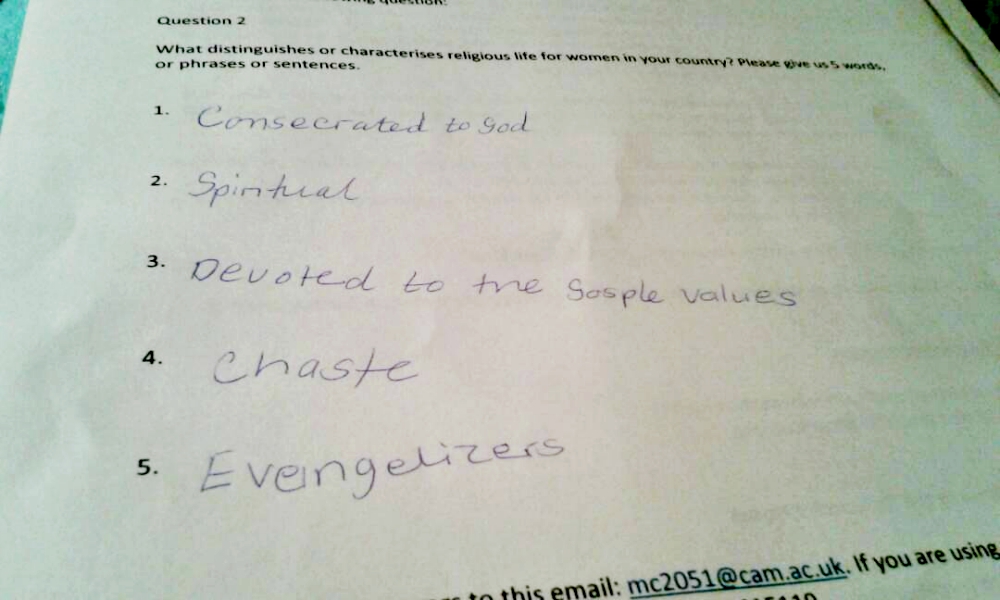 question:
Question 2
What distinguishes or characterises religious life for women in your country? Please give us 5 words,
or phrases or sentences.
1. Consecrated to God
2. Spiritual
3. Devoted to the Gosple values
4. Chaste
5. Evangelizers
to this email: mc2051@cam.ac.uk. If you are using